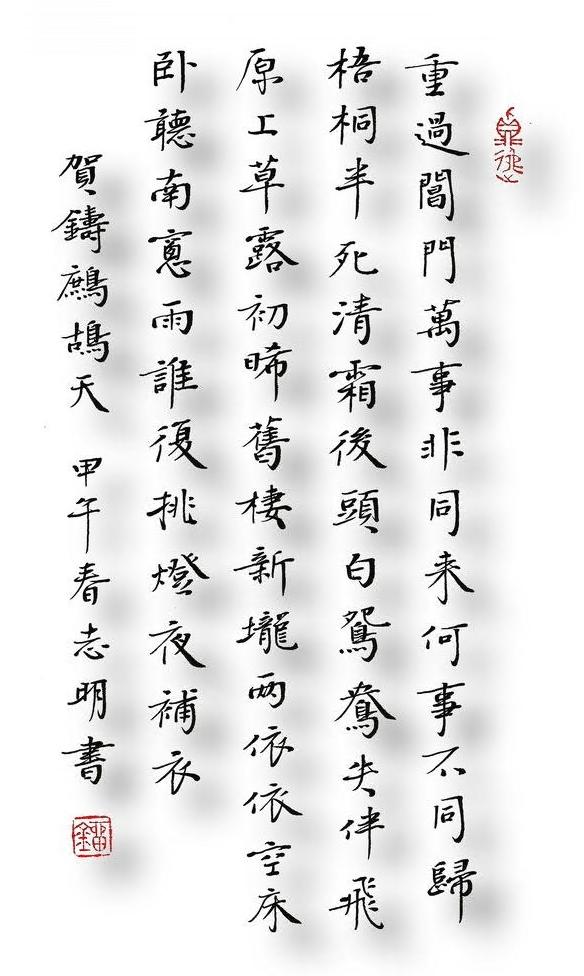 重過閶門萬事非同来何事不同歸
梧桐半死清霜後頭白鴛鴦失伴飛
原上草露初晞舊棲新壠兩依依空床
卧聽南窻雨誰復挑燈夜補衣
賀鑄鷓鴣天 甲午春志明書